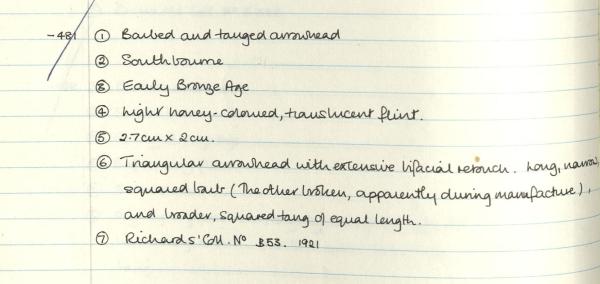 -481 ① Barbed and tanged arrowhead
② Southbourne
③ Early Bronze Age
④ Light honey-coloured, translucent flint.
⑤ 2.7cm x 2cm.
⑥ Triangular arrowhead with extensive bifacial retouch. Long, narrow,
squared barb (The other broken, apparently during manufacture),
and broader, squared tang of equal length.
⑦ Richards' Coll. Nº B53. 1921